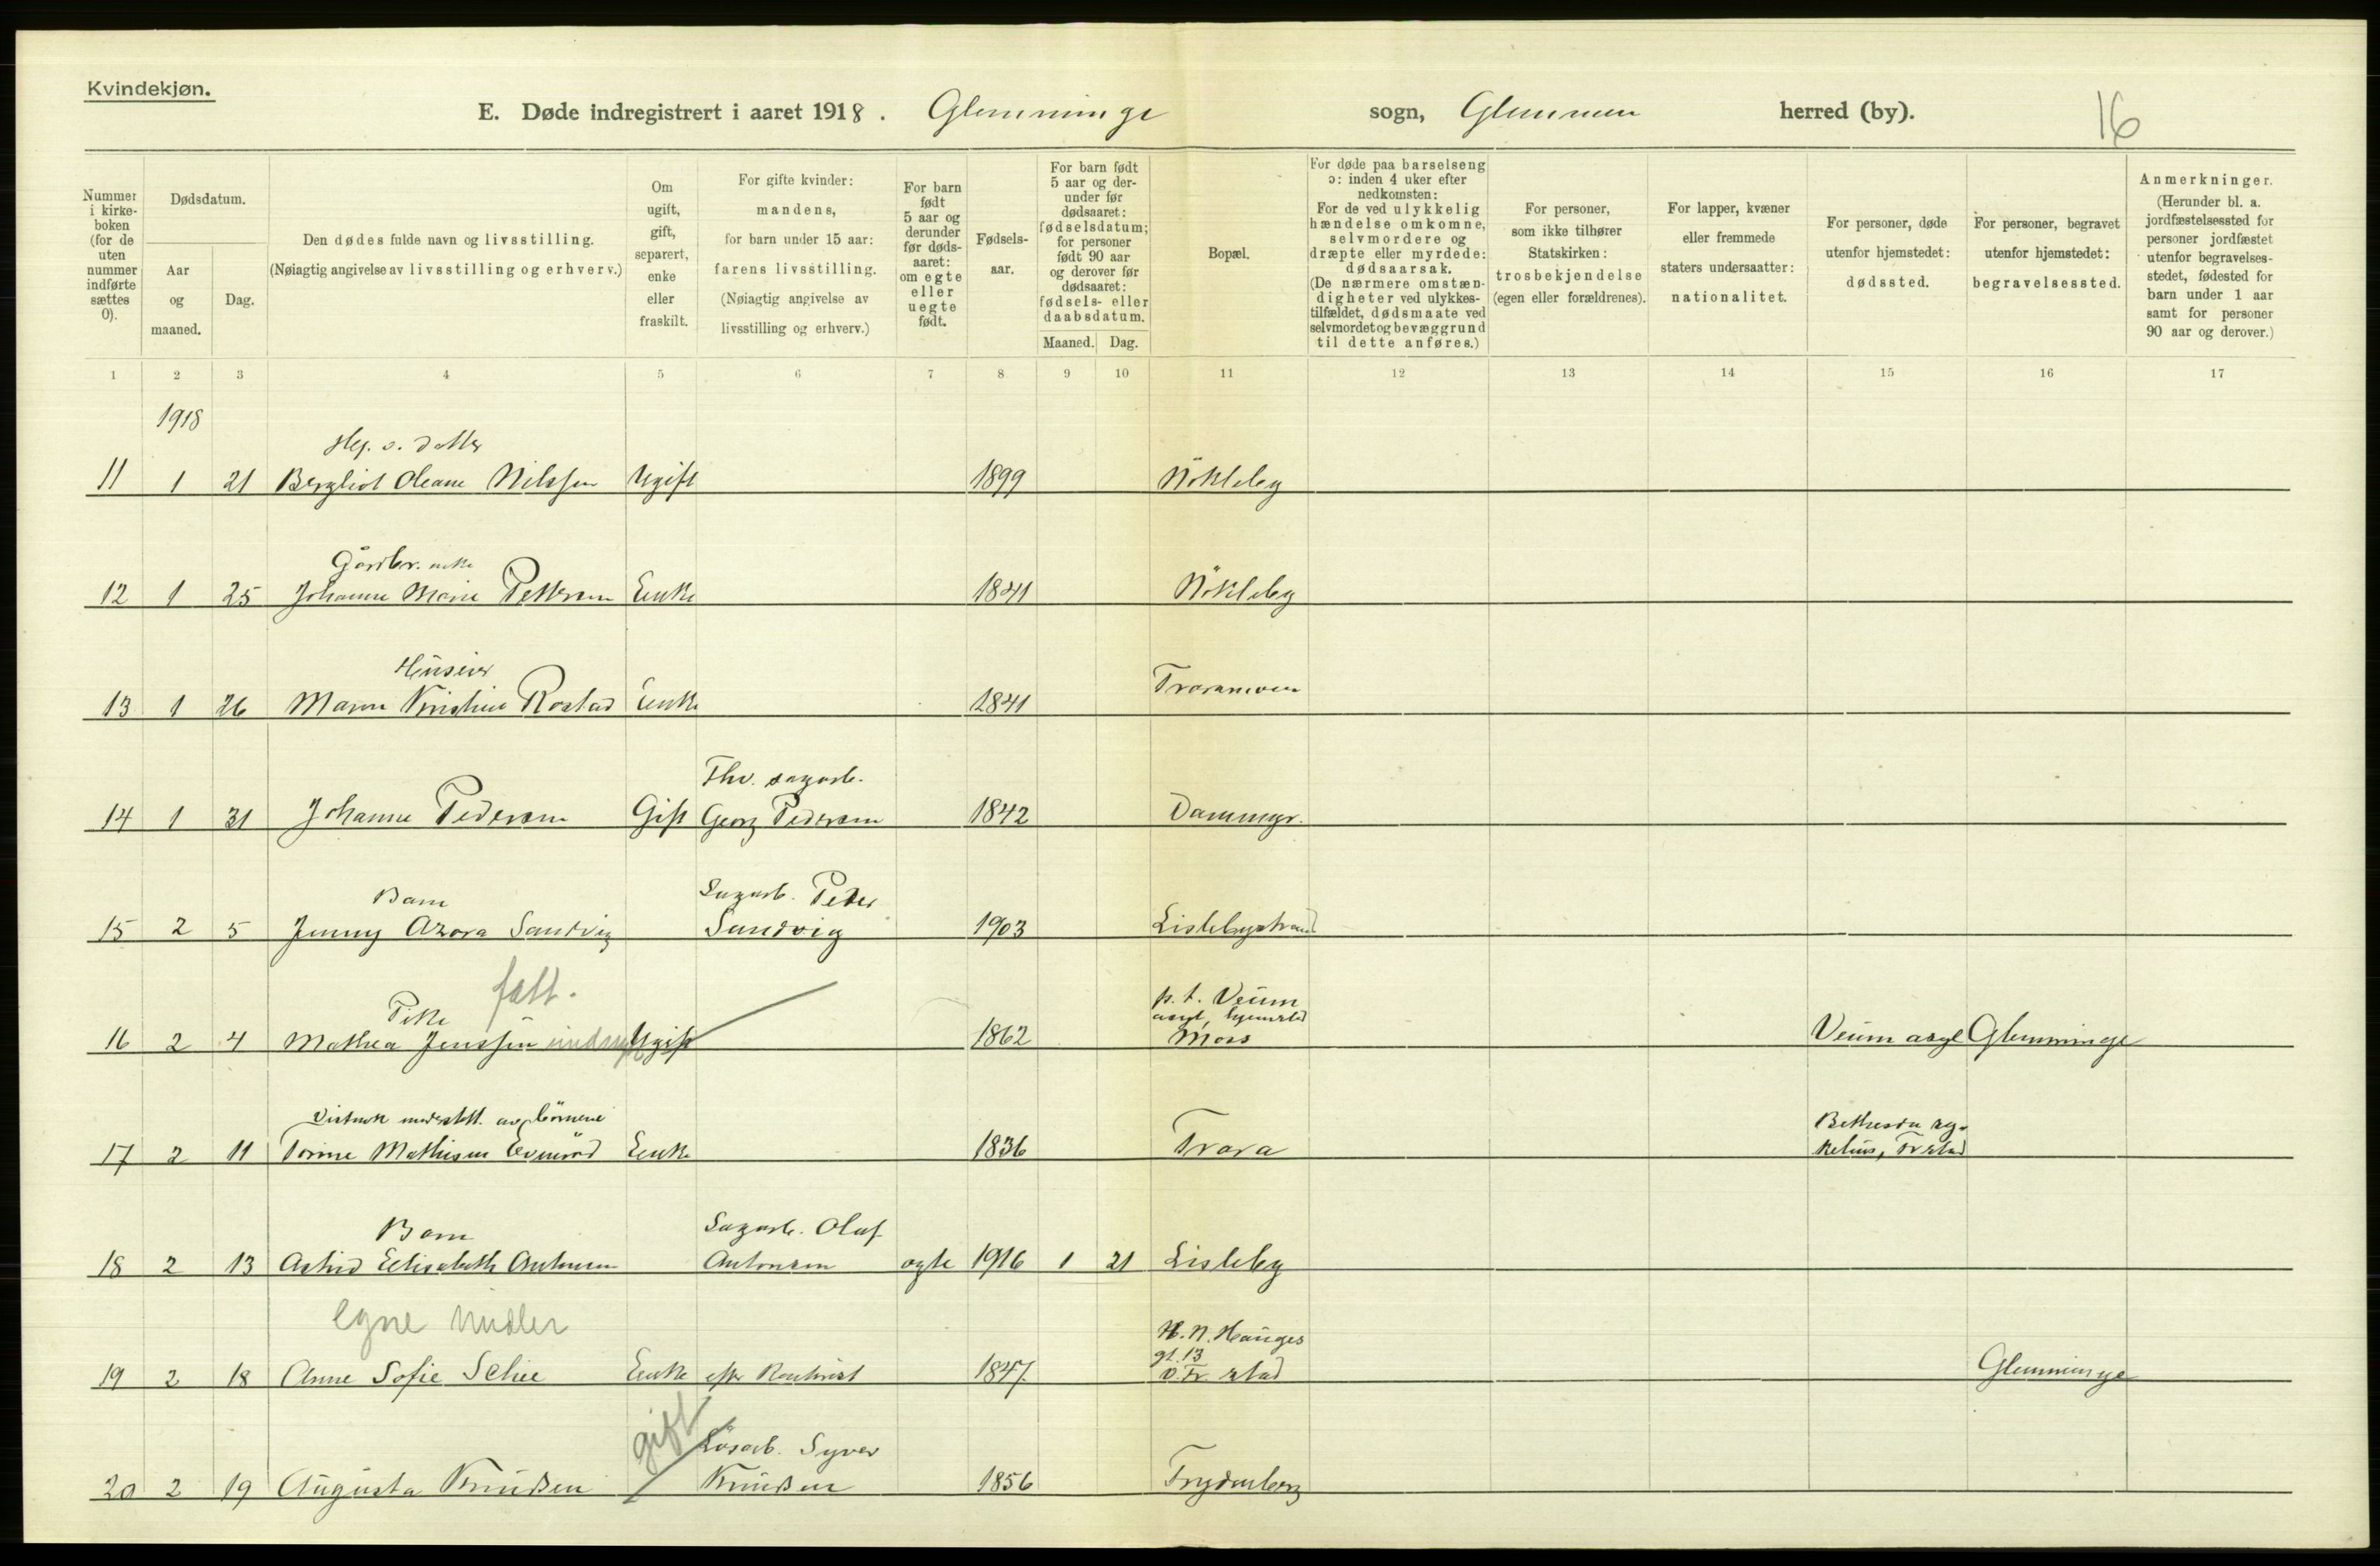 Kvindekjøn.
E. Døde indregistrert i aaret 1918. Glemminge sogn, Glemmen herred (by). 16
Nummer i kirke-boken (for de uten nummer indførte sættes 0).
Dødsdatum.
Aar og maaned.
Dag.
Den dødes fulde navn og livsstilling.
(Nøiagtig angivelse av livsstilling og erhverv.)
Om ugift, gift, separert, enke eller fraskilt.
For gifte kvinder: mandens, for barn under 15 aar: farens livsstilling.
(Nøiagtig angivelse av livsstilling og erhverv.)
For barn født 5 aar og derunder før døds-aaret: om egte eller uegte født.
Fødsels-aar.
For barn født 5 aar og der-under før dødsaaret: fødselsdatum; for personer født 90 aar og derover før dødsaaret: fødsels- eller daabsdatum.
Maaned. Dag.
Bopæl.
For døde paa barselseng ɔ: inden 4 uker efter nedkomsten:
For de ved ulykkelig hændelse omkomne, selvmordere og dræpte eller myrdede: dødsaarsak.
(De nærmere omstæn-digheter ved ulykkes-tilfældet, dødsmaate ved selvmordet og bevæggrund til dette anføres.)
For personer, som ikke tilhører Statskirken: trosbekjendelse (egen eller forældrenes).
For lapper, kvæner eller fremmede staters undersaatter: nationalitet.
For personer, døde utenfor hjemstedet: dødssted.
For personer, begravet utenfor hjemstedet: begravelsessted.
Anmerkninger.
(Herunder bl. a. jordfæstelsessted for personer jordfæstet utenfor begravelses-stedet, fødested for barn under 1 aar samt for personer 90 aar og derover.)
1 2 3 4 5 6 7 8 9 10 11 12 13 14 15 16 17
1918
datter
11 1 21 Bergliot Oleane Nilssen Ugift 1899 Nökleby
Gårdbr. enke
12 1 25 Johanne Marie Pettersen Enke 1841 Nökleby
13 1 26 Maren Kristine Rostad Enke 1841 Traramoen
Fhv. sagarb.
14 1 31 Johanne Pedersen Gift Georg Pedersen 1842 Dammyr.
Barn Sagarb. Peder
15 2 5 Jenny Azora Sandvig Sandvig 1903 Lislebystrand
fatt.
Pike p. t. Veum asyl, hjemsted
16 2 4 Mathea Jenssen Ugift 1862 Moss Veum asyl Glemminge
av börnene Bethesda sy-
17 2 11 Mathisen Enke 1836 Trara kehus, Fr.stad
Barn Sagarb. Olaf
18 2 13 Astrid Elisabeth Antonsen Antonsen egte 1916 1 21 Lisleby
egne midler H. N. Hauges gt. 13
19 2 18 Anne Sofie Schie Enke efter 1847 Ø. Fr.stad Glemminge
gift Løsarb. Syver
20 2 19 Augusta Knudsen Knudsen 1856 Frydenberg